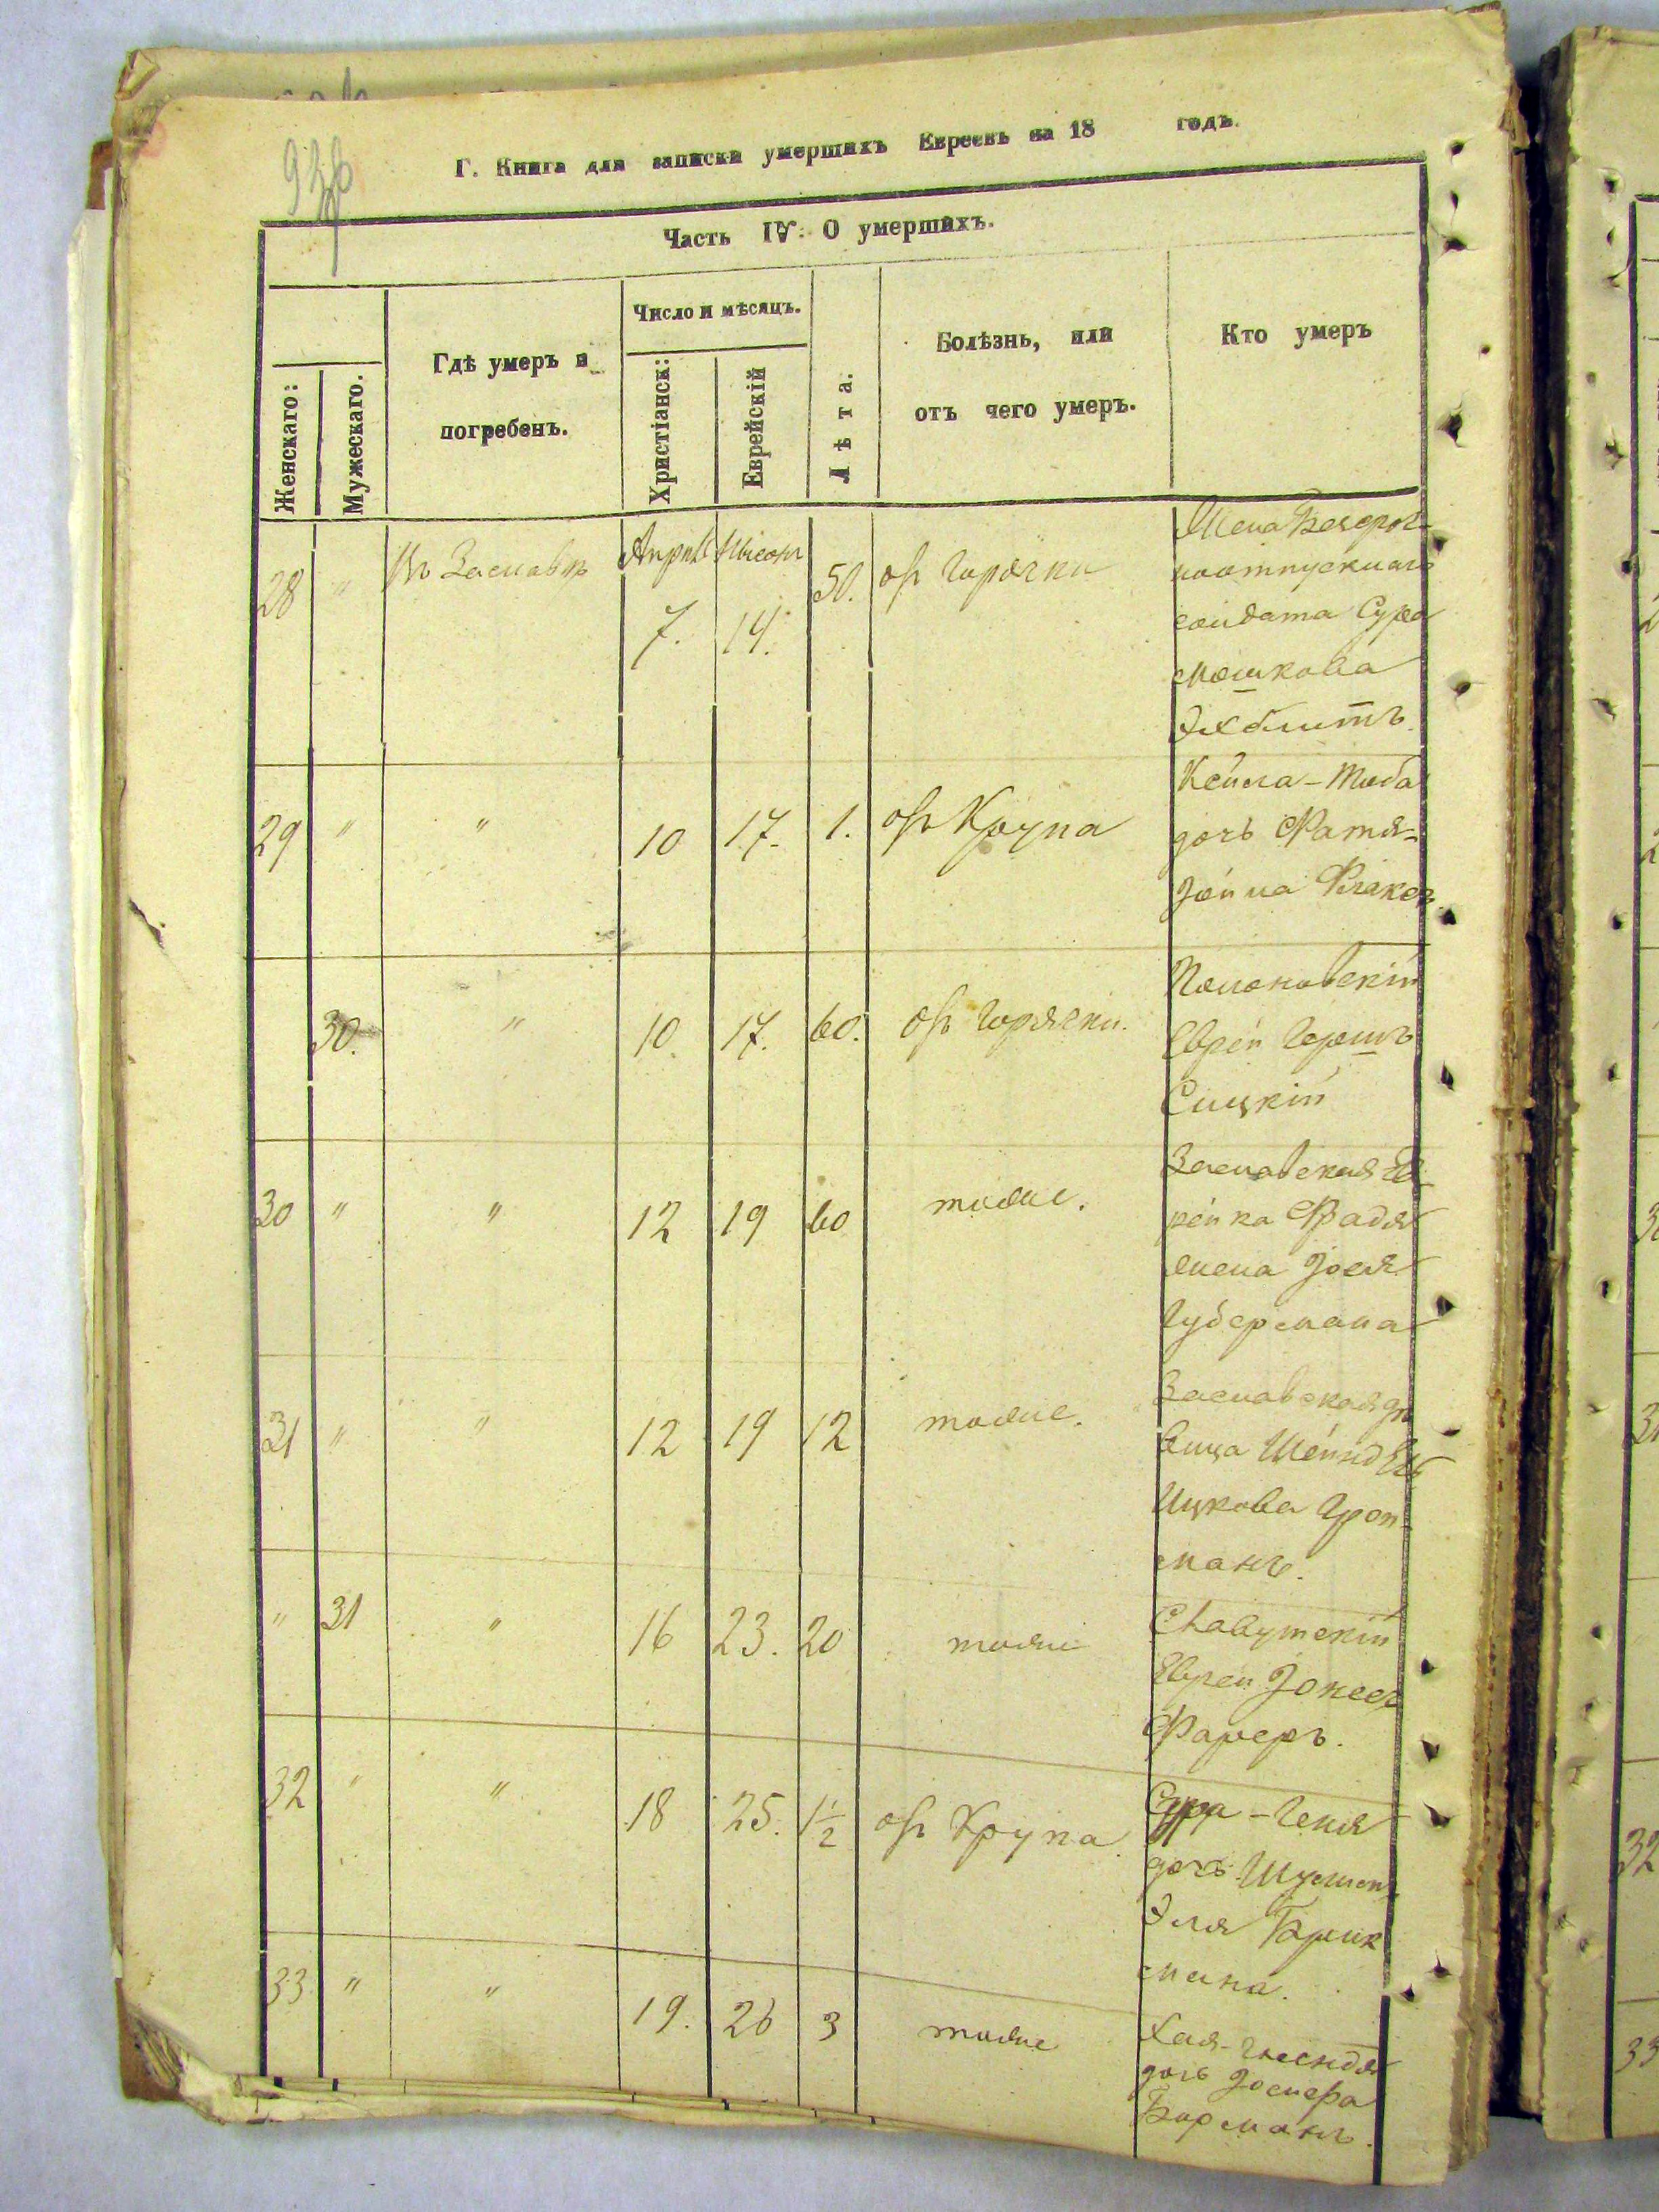 Г. Книга для записки умершихъ Евреевъ на 18 годъ.
Часть IV. О умершихъ.
Женскаго:
Мужескаго.
Гдѣ умеръ и
погребенъ.
Число и мѣсяцъ.
Христіанск:
Еврейскій
Лѣта.
Болѣзнь, или
отъ чего умеръ.
Кто умеръ
28 " Въ Заславлѣ Апрѣль 7. Нисонъ 14. 50. отъ Горячки
Жена Безсроч-
ноотпускнаго
солдата Сура
Мошкова
29 " " 10 17. 1. отъ Крупа
Кейла-Тоба
дочь Мотя-
30. " 10. 17. 60. отъ Горячки.
Полоновскій
Еврей Гершъ
Сицкій
30 " " 12 19 60 тоже.
Заславская Ев-
рейка Фрадя
жена Іося
Губермана
31 " " 12 19 12 тоже.
Заславская дѣ
вица Шейндель
Ицкова Гроп-
манъ.
" 31 " 16 23. 20 тоже
Славутскій
Еврей
32 " " 18 25. 1½ отъ Крупа.
Сура-Геня
дочь
Эля Брик
мана.
33 " " 19. 26 3 тоже
дочь Іосифа
Борманъ.